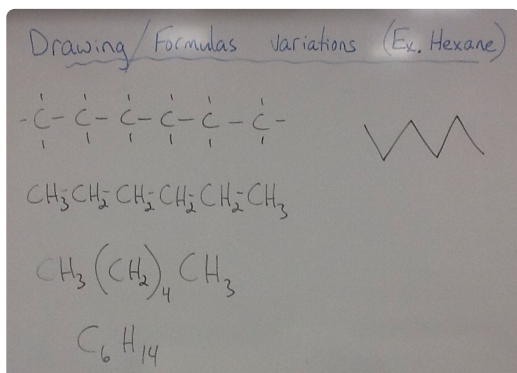 Drawing/Formulas variations (Ex. Hexane)
-C-C-C-C-C-C-
CH₃-CH₂-CH₂-CH₂-CH₂-CH₃
CH₃(CH₂)₄CH₃
C₆H₁₄